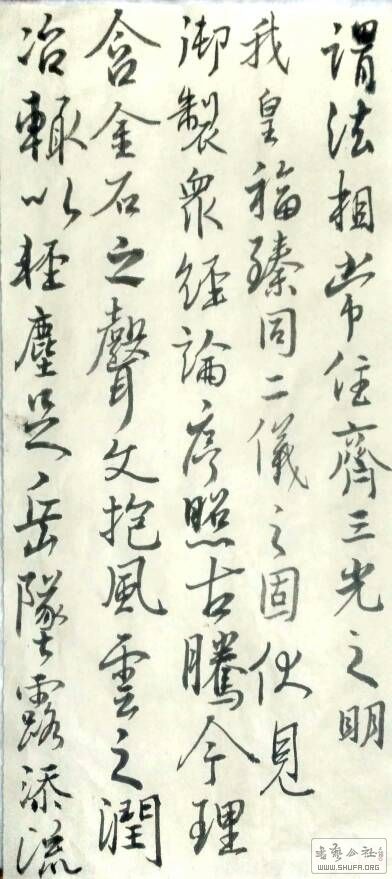 謂法相常住齊三光之明
我皇福臻同二儀之固伏見
御製衆經論序照古騰今理
含金石之聲文抱風雲之潤
冶輙以輕塵足岳墜露添流
WWW.SHUFA.ORG